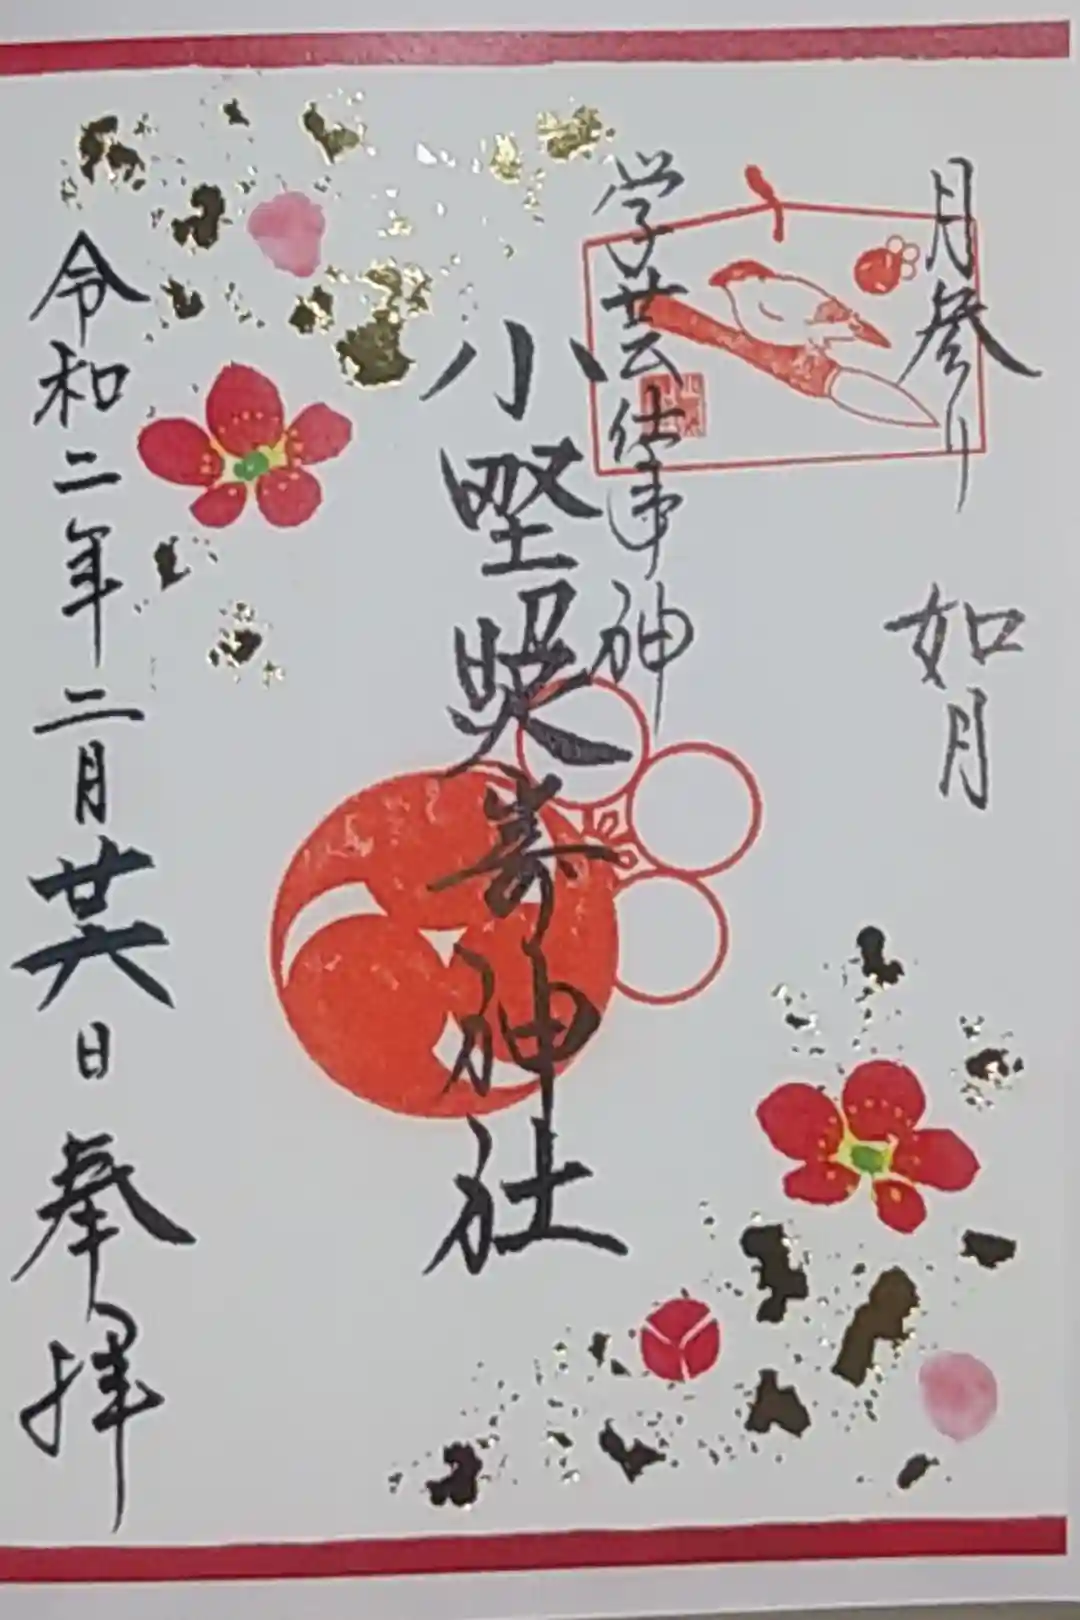 月参り 如月
学芸仕事神
小野照嵜神社
令和二年二月廿六日 奉拝